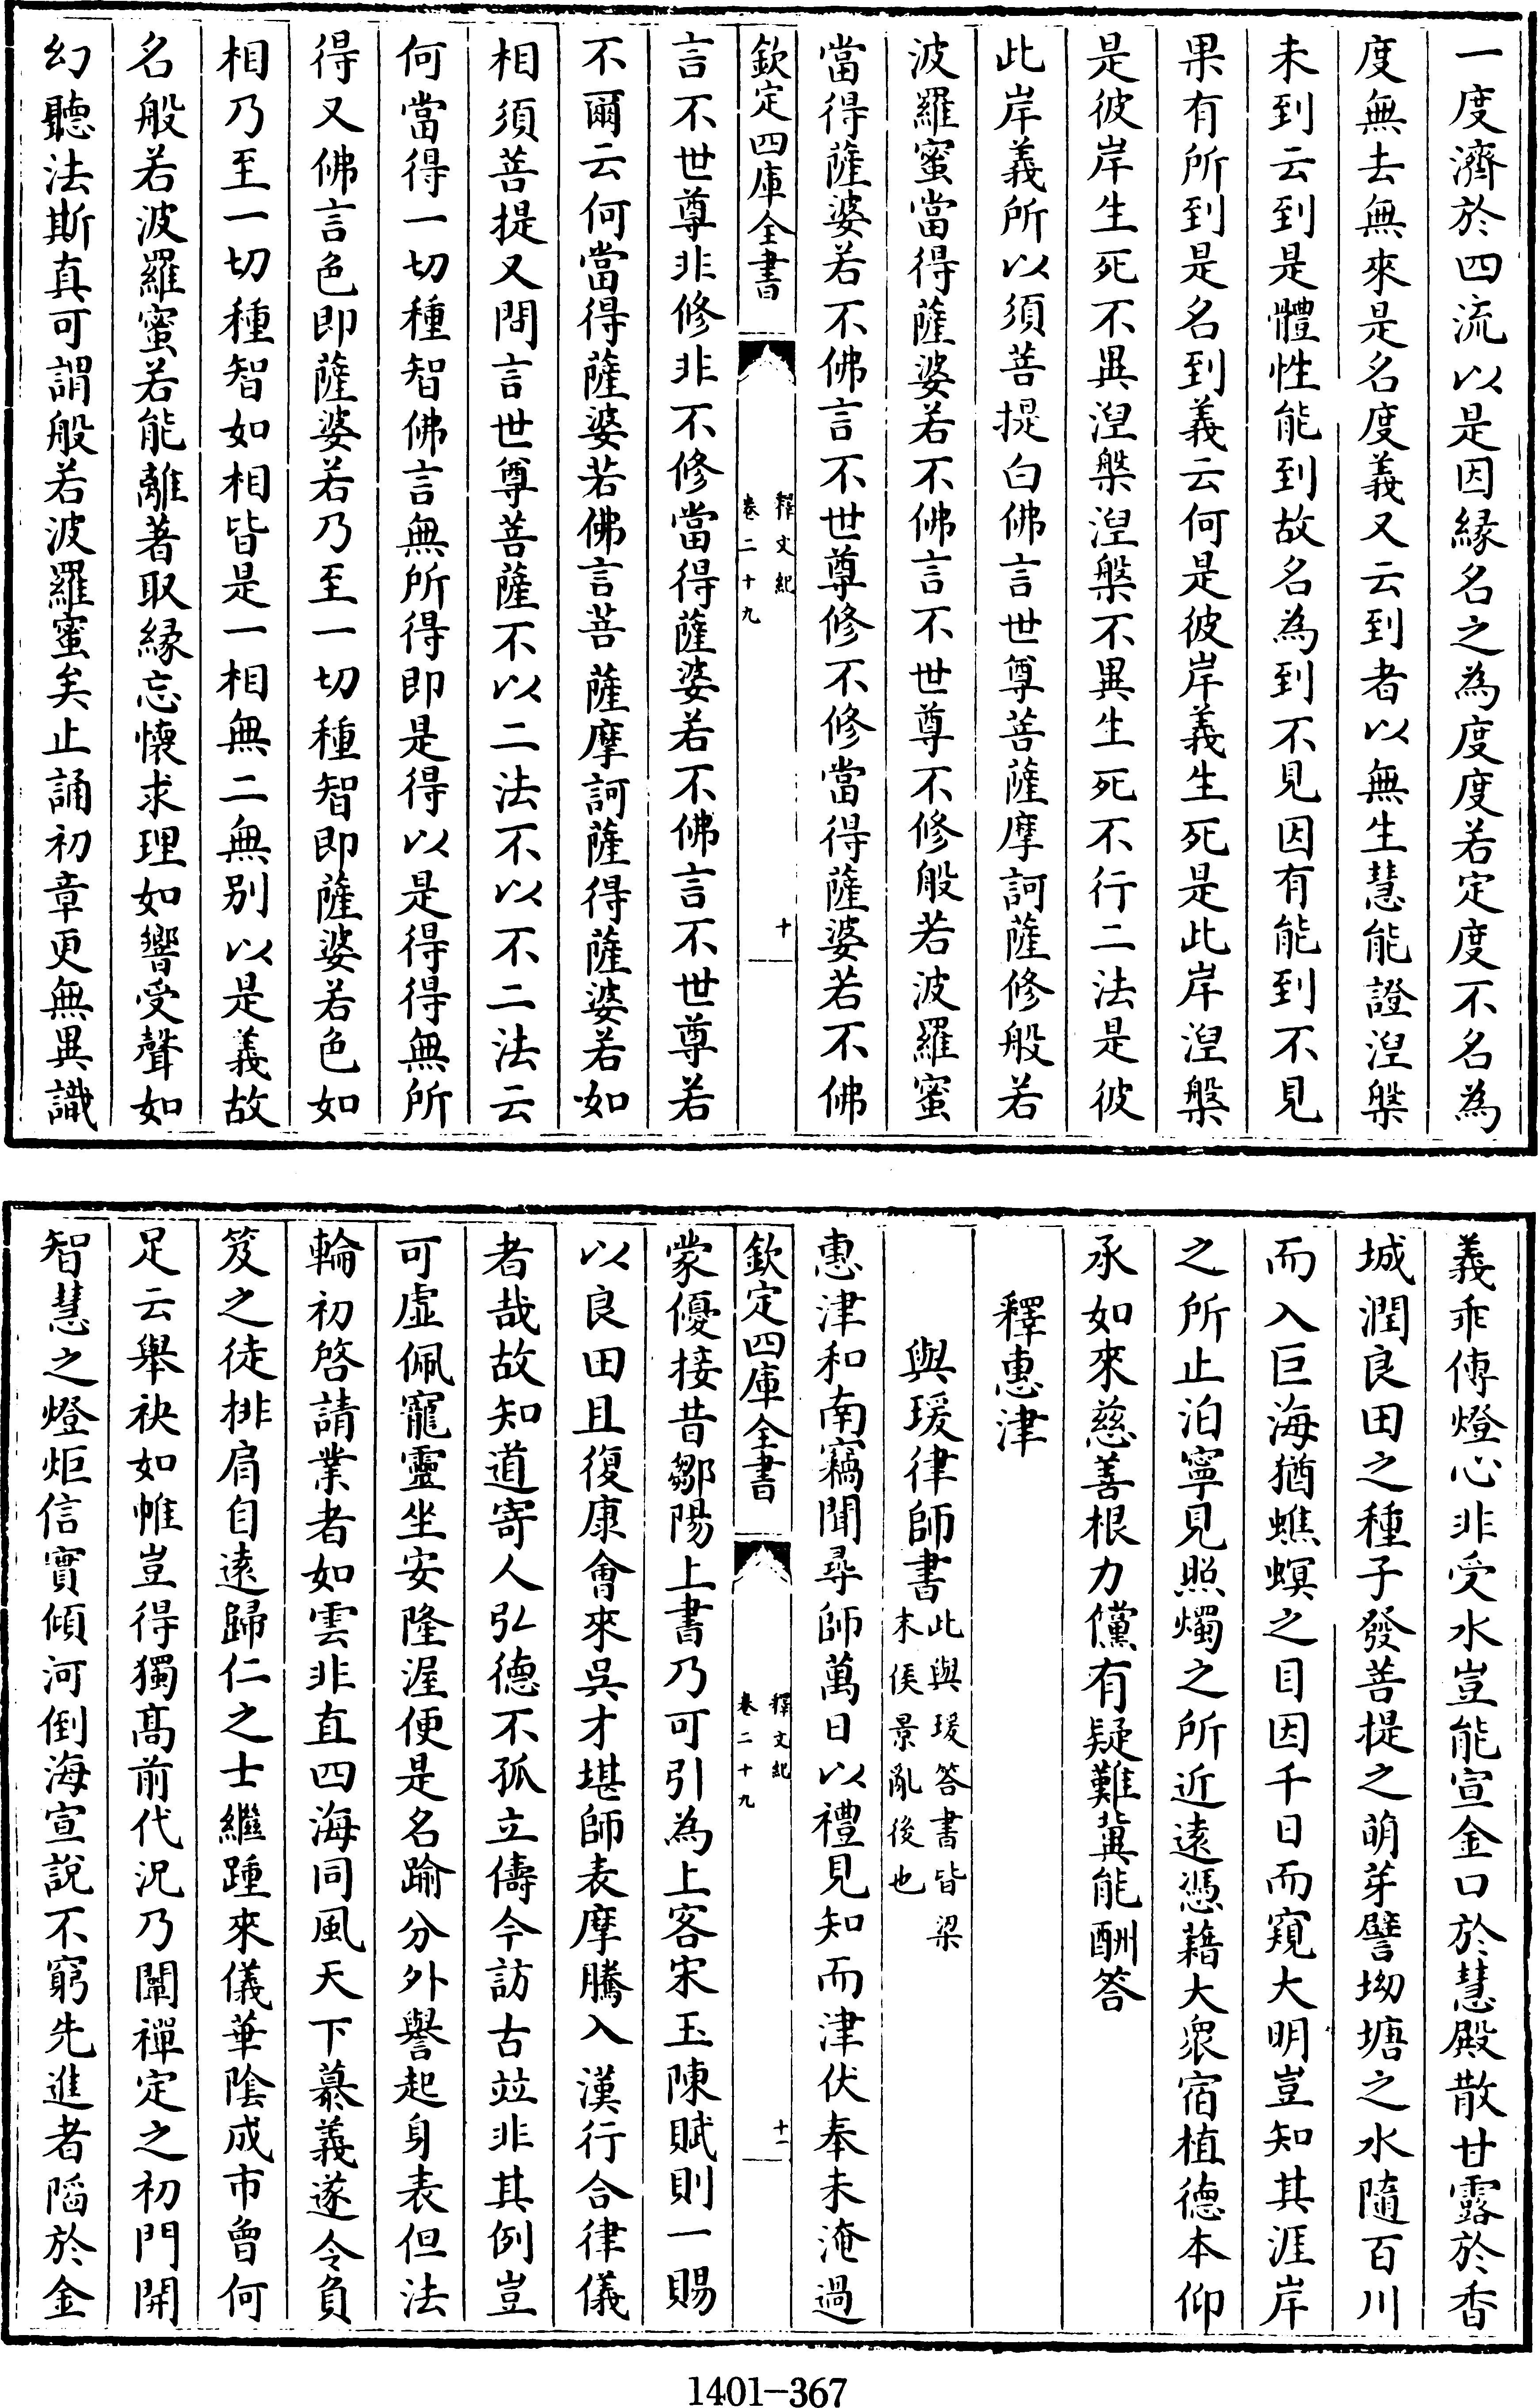 一度濟於四流以是因緣名之為度度若定度不名為
度無去無來是名度義又云到者以無生慧能證湼槃
未到云到是體性能到故名為到不見因有能到不見
果有所到是名到義云何是彼岸義生死是此岸湼槃
是彼岸生死不異湼槃湼槃不異生死不行二法是彼
此岸義所以須菩提白佛言世尊菩薩摩訶薩修般若
波羅蜜當得薩婆若不佛言不世尊不修般若波羅蜜
當得薩婆若不佛言不世尊修不修當得薩婆若不佛
欽定四庫全書
釋文紀
卷二十九
十
言不世尊非修非不修當得薩婆若不佛言不世尊若
不爾云何當得薩婆若佛言菩薩摩訶薩得薩婆若如
相須菩提又問言世尊菩薩不以二法不以不二法云
何當得一切種智佛言無所得即是得以是得得無所
得又佛言色即薩婆若乃至一切種智即薩婆若色如
相乃至一切種智如相皆是一相無二無別以是義故
名般若波羅蜜若能離著取緣忘懷求理如響受聲如
幻聽法斯真可謂般若波羅蜜矣止誦初章更無異識
義乖傳燈心非受水豈能宣金口於慧殿散甘露於香
城潤良田之種子發菩提之萌芽譬坳塘之水隨百川
而入巨海猶蟭螟之目因千日而窺大明豈知其涯岸
之所止泊寧見照燭之所近遠憑藉大衆宿植德本仰
承如來慈善根力儻有疑難冀能酬答
釋惠津
與瑗律師書此與瑗答書皆梁
末侯景亂後也
惠津和南竊聞尋師萬日以禮見知而津伏奉未淹過
欽定四庫全書
釋文紀
卷二十九
十一
蒙優接昔鄒陽上書乃可引為上客宋玉陳賦則一賜
以良田且復康會來吳才堪師表摩騰入漢行合律儀
者哉故知道寄人弘德不孤立儔今訪古竝非其例豈
可虛佩寵靈坐安隆渥便是名踰分外譽起身表但法
輪初啓請業者如雲非直四海同風天下慕義遂令負
笈之徒排肩自遠歸仁之士繼踵來儀華陰成市曾何
足云舉袂如帷豈得獨髙前代況乃闡禪定之初門開
智慧之燈炬信實傾河倒海宣說不窮先進者陷於金
1401-367